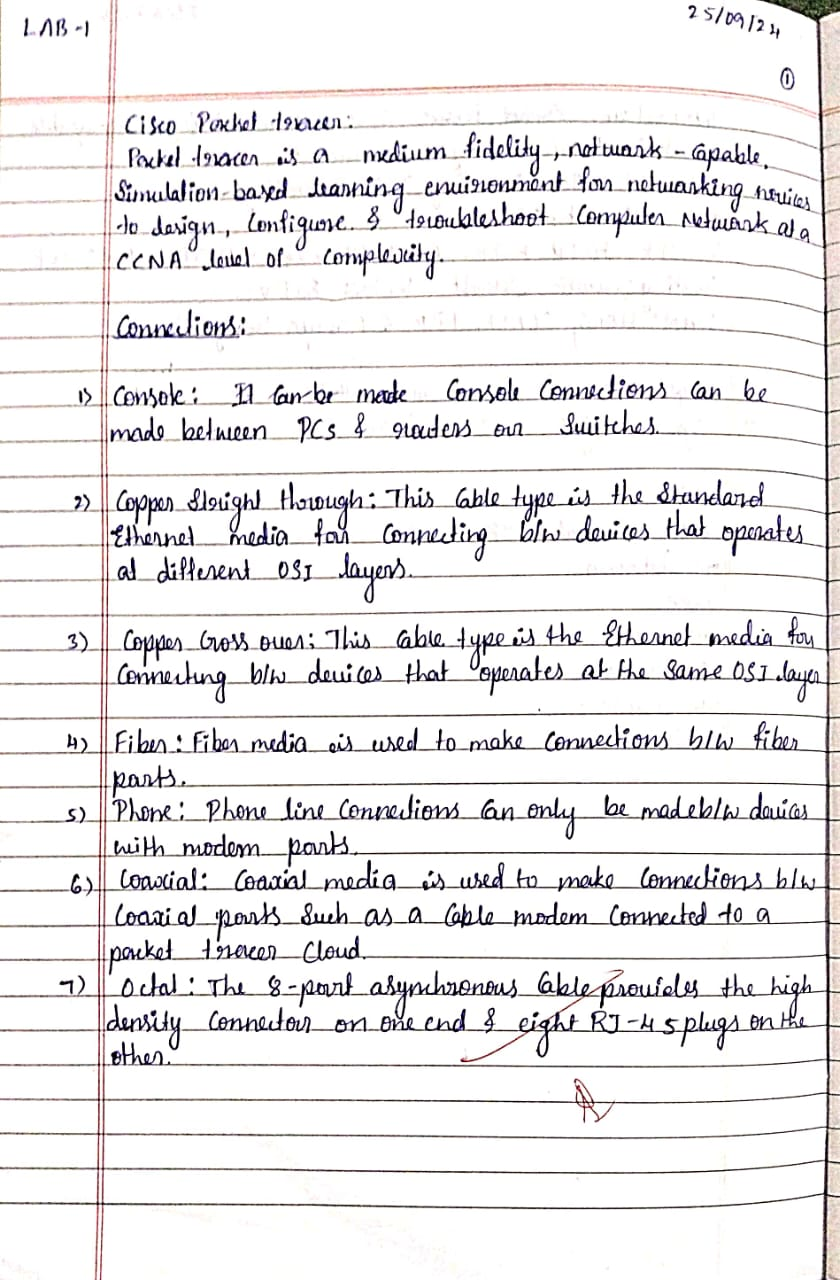 LAB-1
25/09/24
1
Cisco Packet tracer:
Packet tracer is a medium fidelity, network-capable,
Simulation-based learning environment for networking novices
to design, Configure & troubleshoot Computer Network at a
CCNA level of complexity.
Connections:
1) Console: It Can be made Console Connections Can be
made between PCs & routers or Switches.
2) Copper Straight through: This Cable type is the Standard
Ethernet media for Connecting b/w devices that operates
at different OSI layers.
3) Copper Cross over: This Cable type is the Ethernet media for
Connecting b/w devices that operates at the Same OSI layer
4) Fiber: Fiber media is used to make Connections b/w fiber
ports.
5) Phone: Phone line Connections Can only be made b/w devices
with modem ports.
6) Coaxial: Coaxial media is used to make Connections b/w
Coaxial ports Such as a Cable modem Connected to a
packet tracer Cloud.
7) Octal: The 8-port asynchronous Cable provides the high
density Connector on one end & eight RJ-45 plugs on the
other.